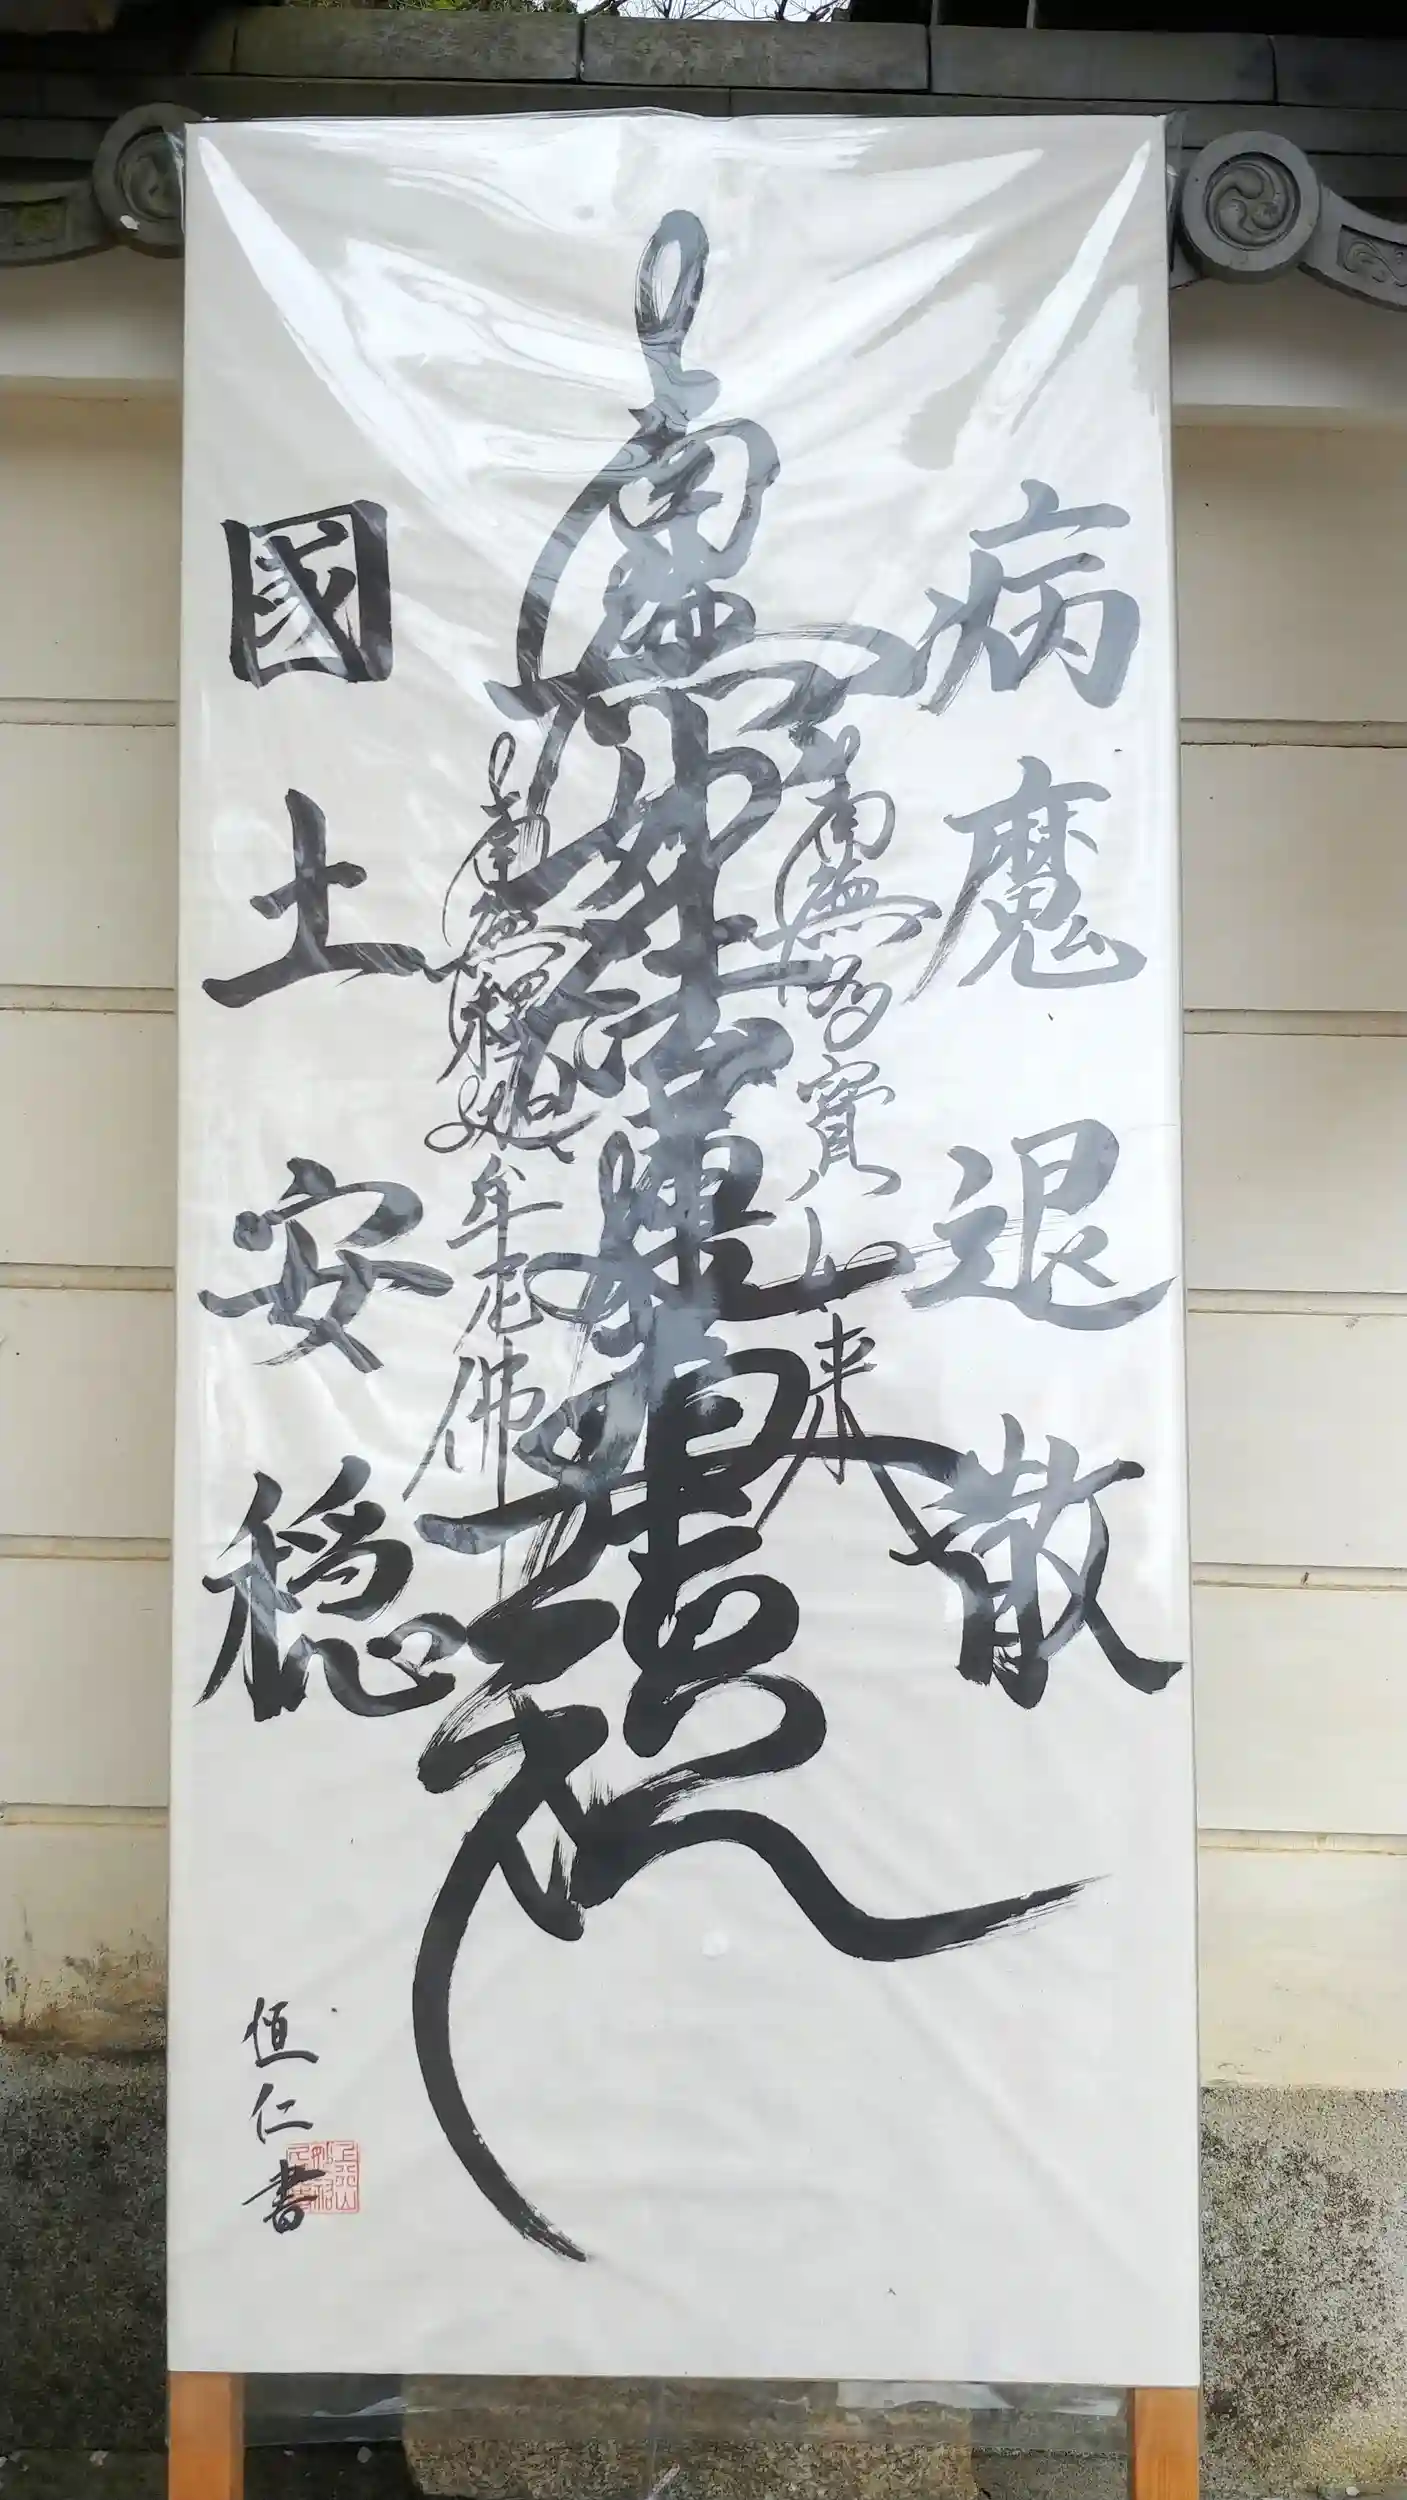 病魔退散
南無多寶如来
南無妙法蓮華經
南無釋迦牟尼佛
國土安穏
恒仁書